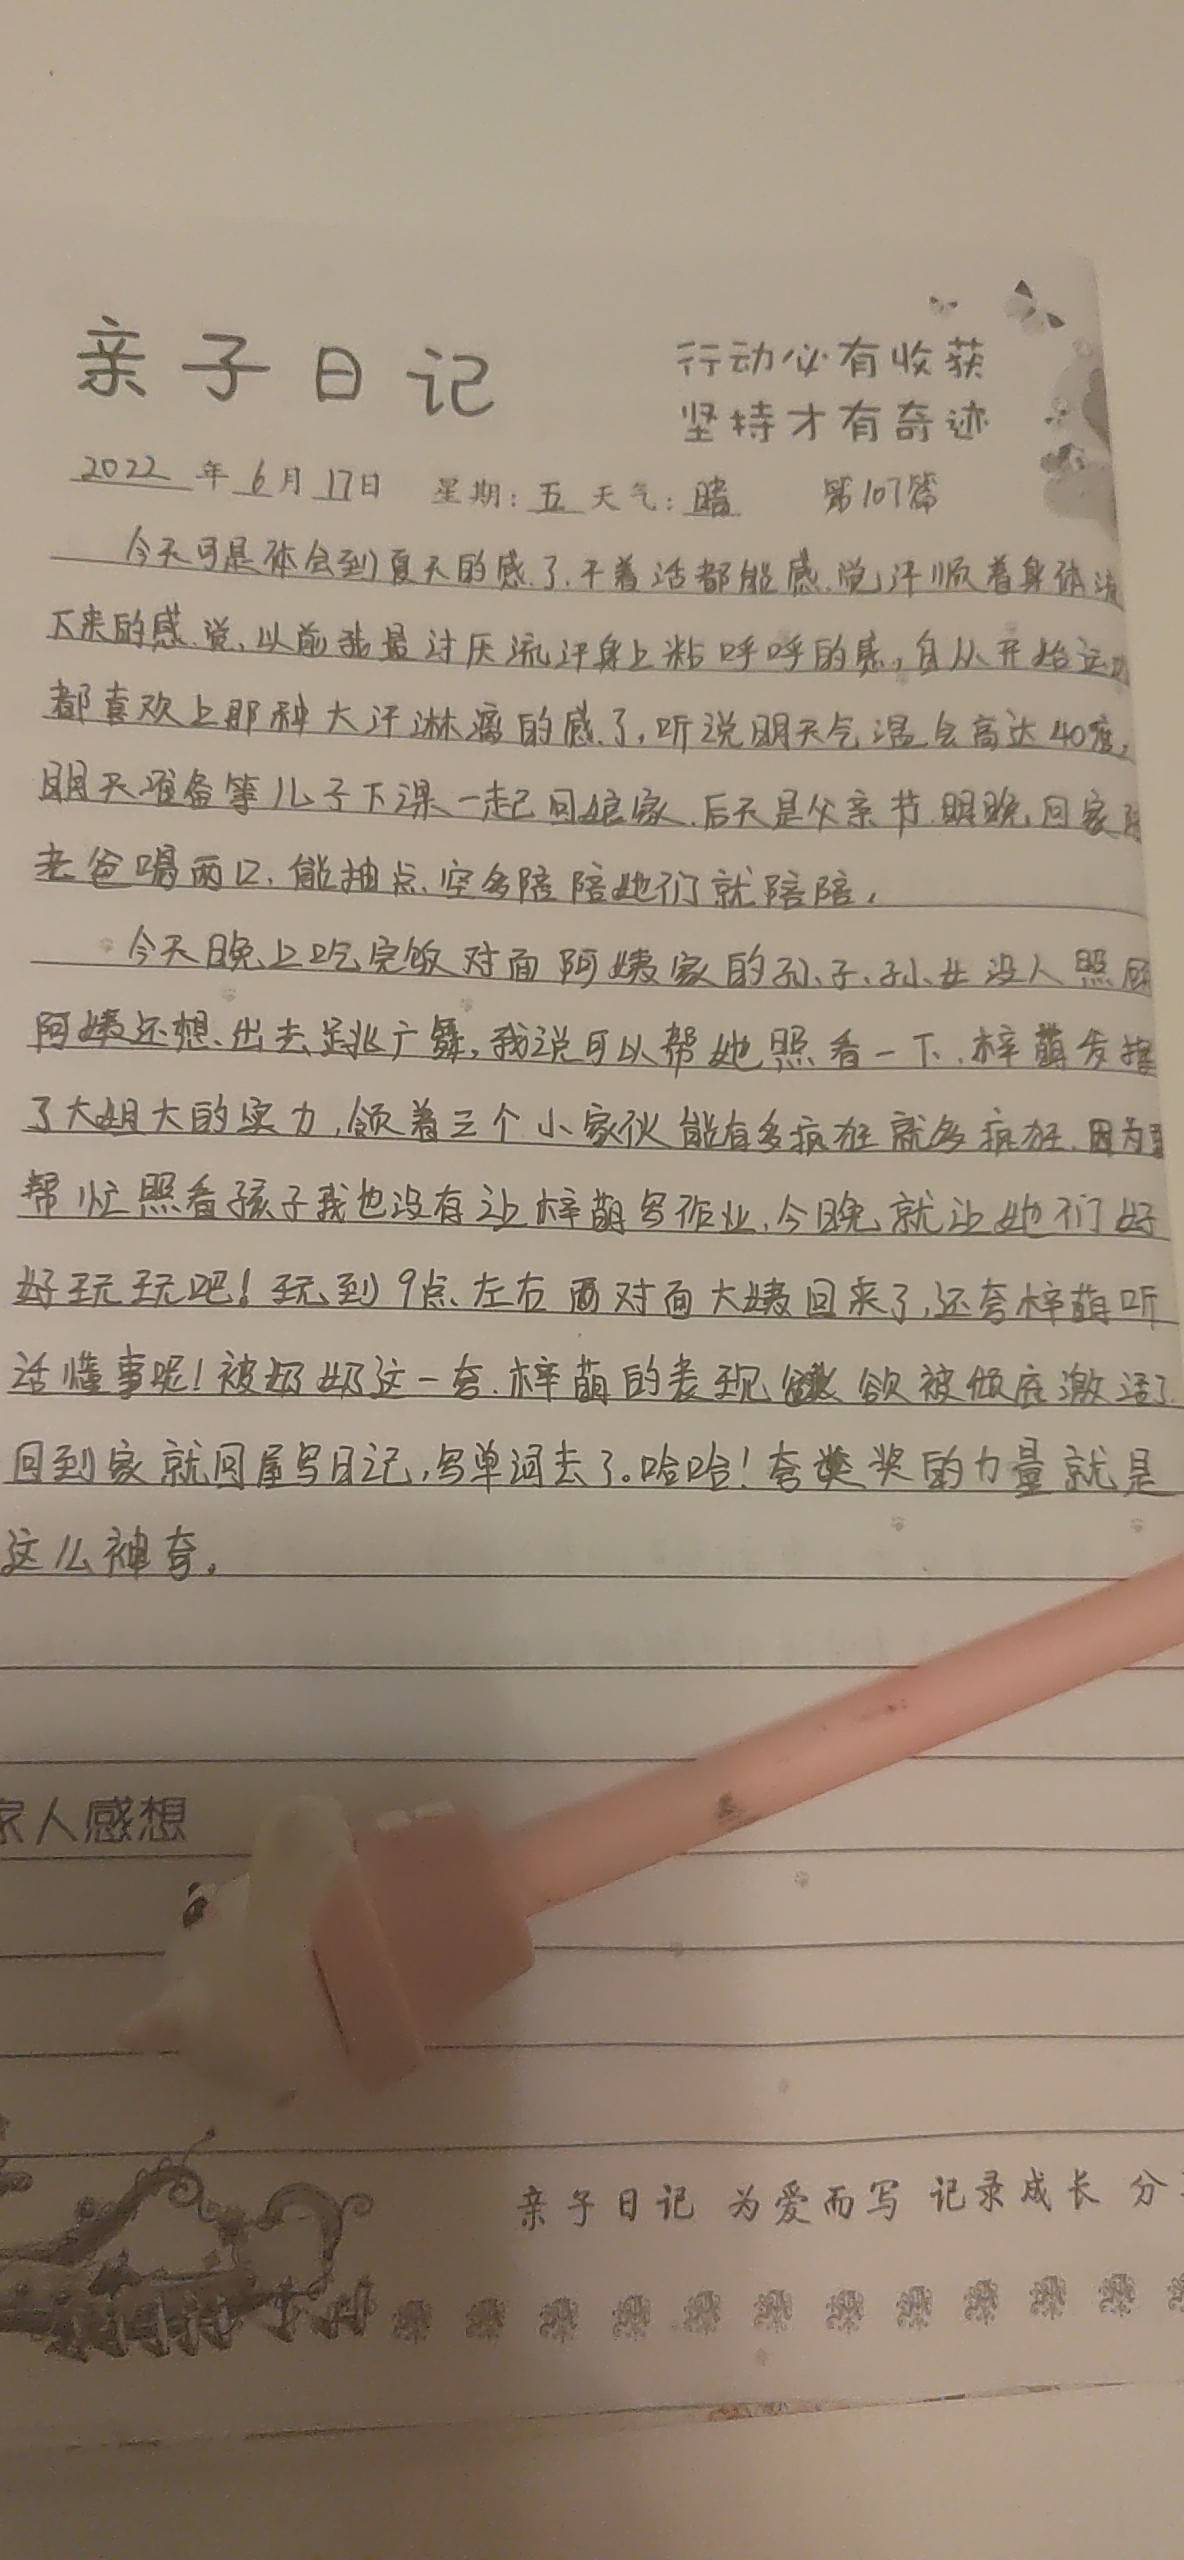 亲子日记
行动必有收获
坚持才有奇迹
2022年6月17日 星期:五 天气:晴 第107篇
今天可是体会到夏天的感了.干着活都能感.觉汗顺着身体流
下来的感.觉,以前我最讨厌流汗身上粘呼呼的感,自从开始运
都喜欢上那种大汗淋漓的感了,听说明天气温会高达40度,
明天准备等儿子下课一起回娘家.后天是父亲节.明晚回家
老爸喝两口,能抽点空多陪陪她们就陪陪,
今天晚上吃完饭对面阿姨家的孙子、孙女没人照顾
阿姨还想出去跳广舞,我说可以帮她照看一下.梓萌发挥
了大姐大的实力,领着三个小家伙能有多疯狂就多疯狂.因为
帮忙照看孩子我也没有让梓萌写作业.今晚就让她们好
好玩玩吧!玩到9点左右 对面大姨回来了,还夸梓萌听
话懂事呢!被奶奶这一夸.梓萌的表现 欲被倾底激活了.
回到家就回屋写日记,写单词去了。哈哈!夸 奖的力量就是
这么神奇。
家人感想
亲子日记 为爱而写 记录成长 分